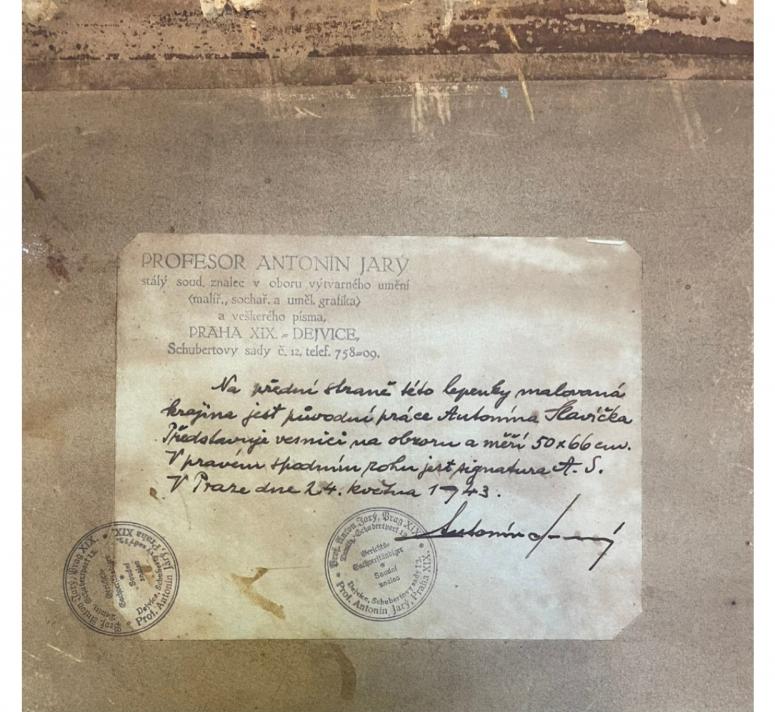 PROFESOR ANTONÍN JARÝ
stálý soud. znalec v oboru výtvarného umění
(malíř., sochař. a uměl. grafika)
a veškerého písma,
PRAHA XIX. - DEJVICE,
Schubertovy sady č. 12, telef. 758-09.
Na přední straně této lepenky malovaná
krajina jest původní práce Antonína Slavíčka
Představuje vesnici na obzoru a měří 50x66 cm.
V pravém spodním rohu jest signatura A. S.
V Praze dne 24. května 1943.
Antonín Jarý
Prof. Anton Jarý, Prag XIX.
Schubertpark 12.
Gerichts-
Sachverständiger
Soudní
znalec
Dejvice, Schubertovy sady 12.
Prof. Antonín Jarý, Praha XIX.
Prof. Anton Jarý, Prag XIX.
Schubertpark 12.
Soudní
znalec
Dejvice, Schubertovy sady 12.
Prof. Antonín Jarý, Praha XIX.